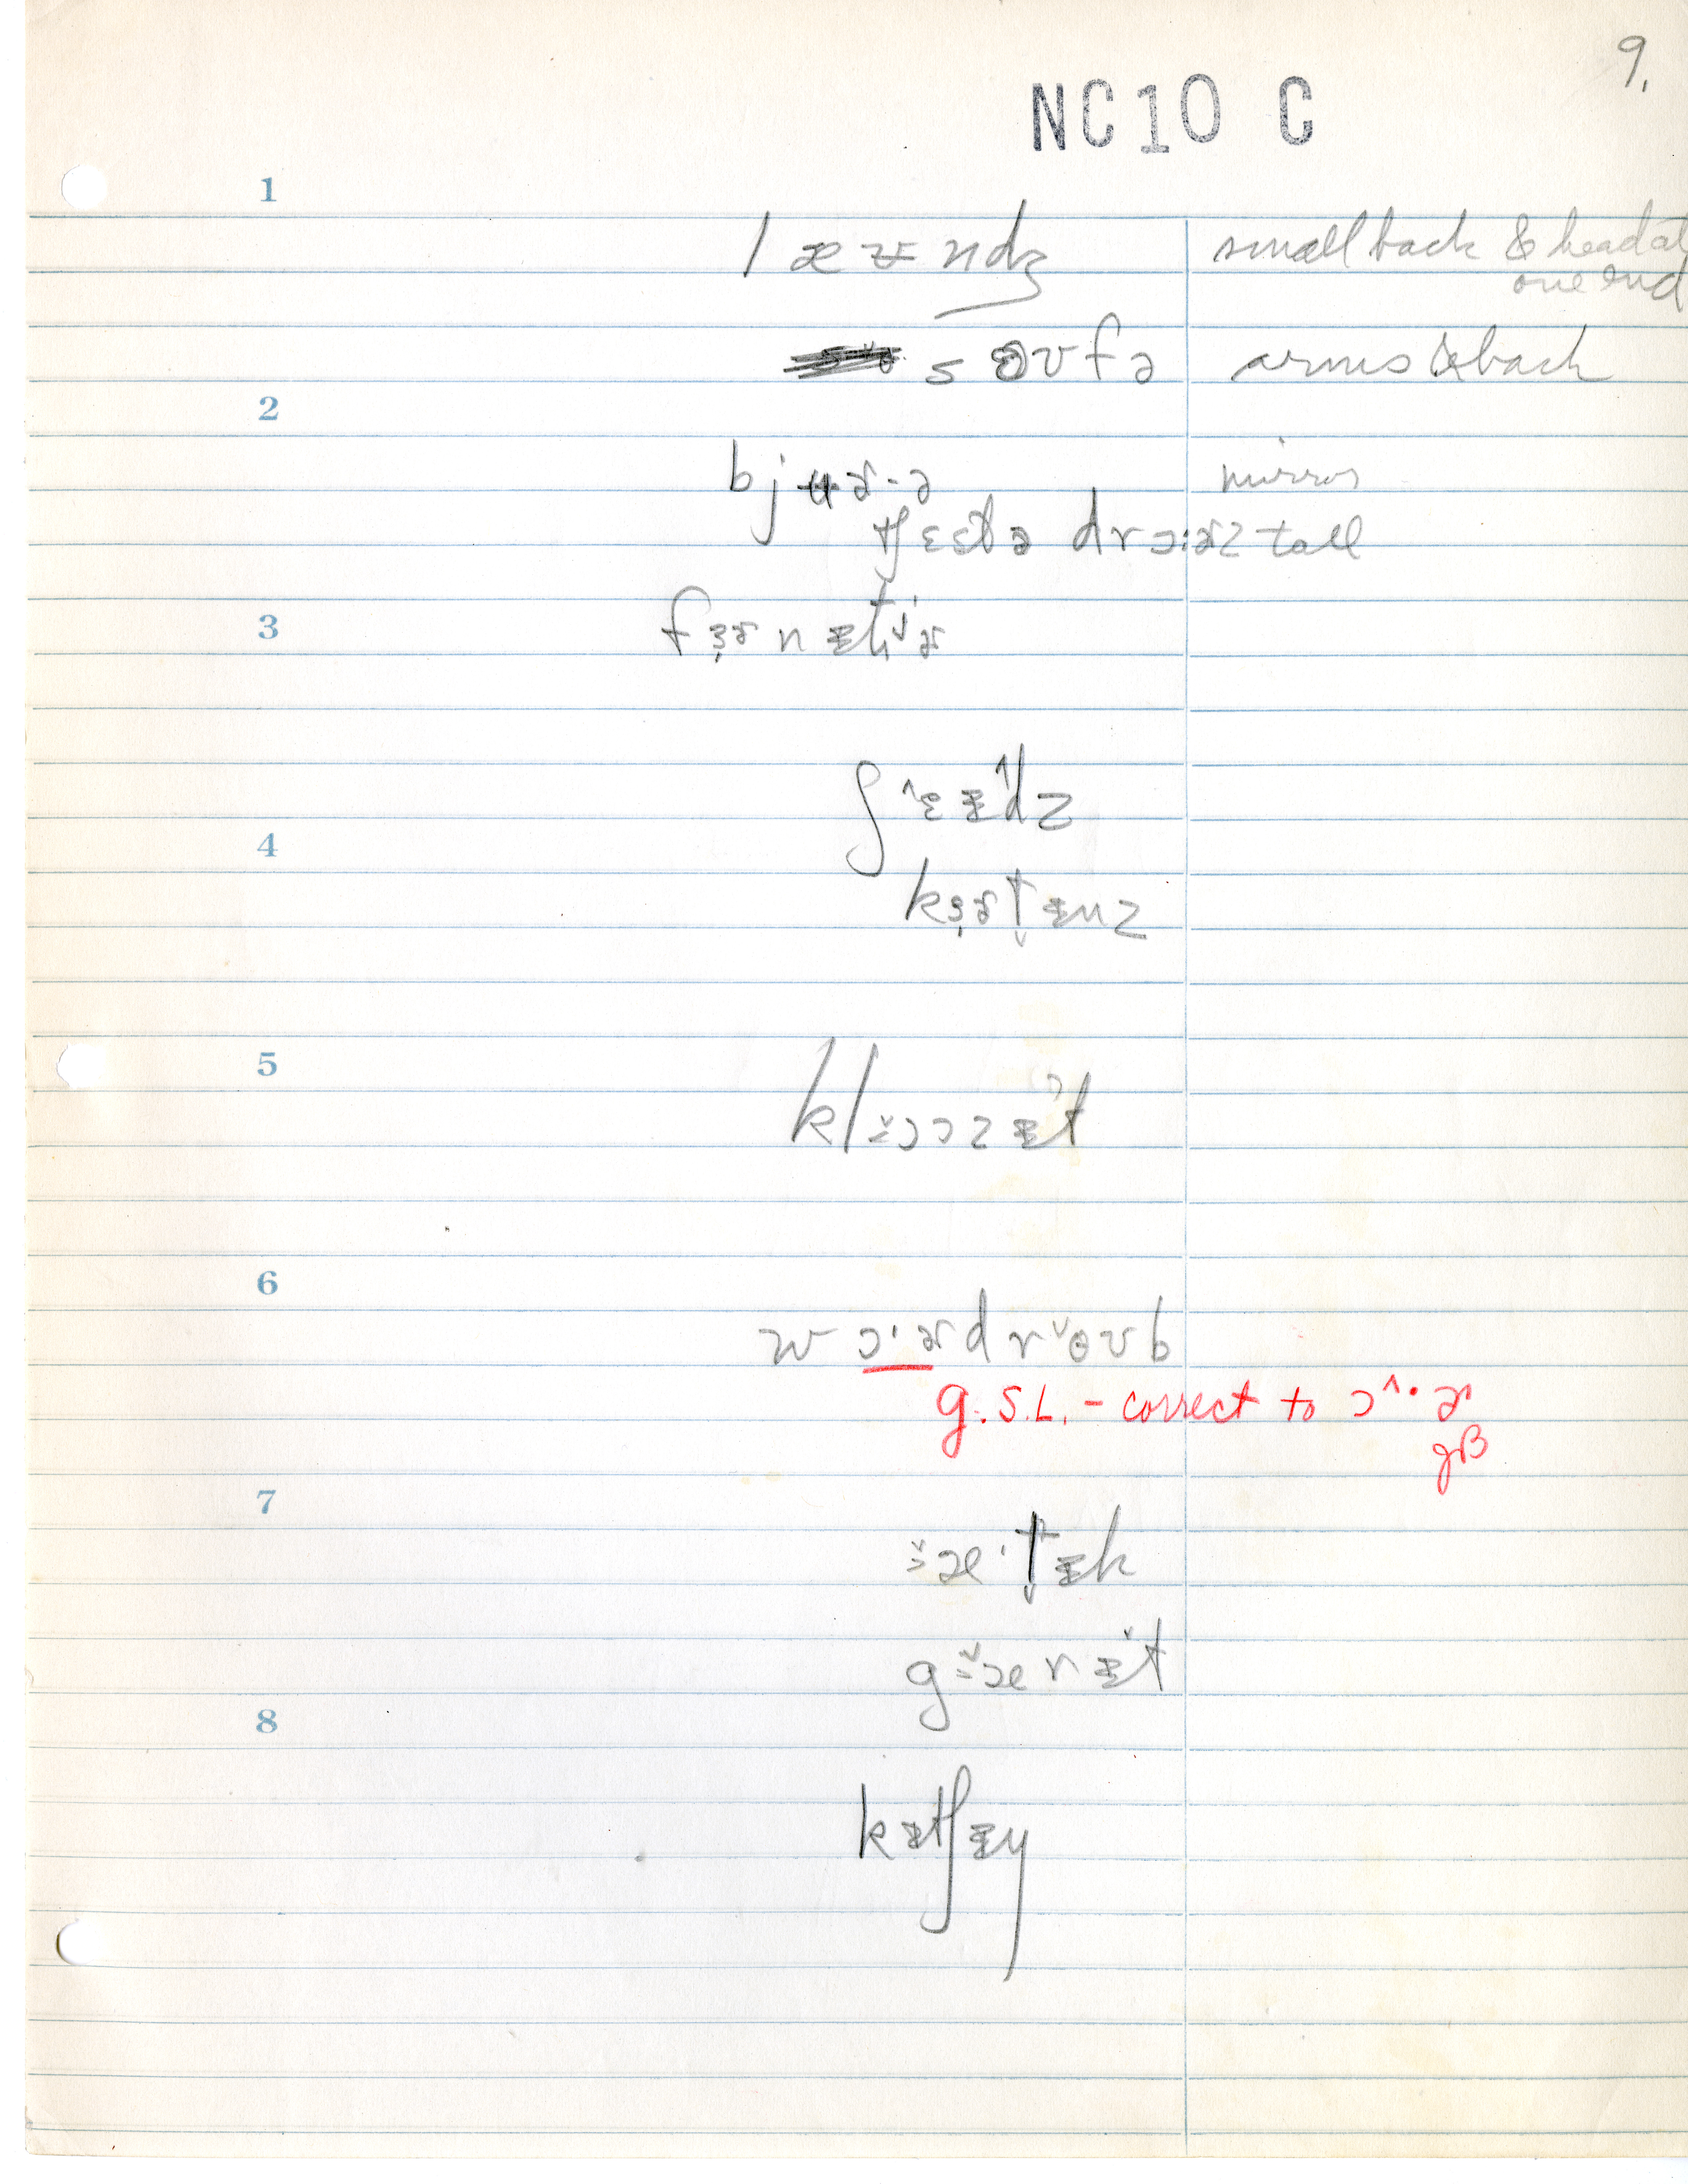 9.
NC10 C
1
læᵾndʒ small back & head at
one end
sɵʊfə arms & back
2
bjʉɚ-ə mirror
tʃɛstə drɔ:ɚz tall
3
fɜɚnɪtʃɚ
ʃ^ɛɪdz
4
kɜɚtɪnz
5
klɔɔzɪt
6
wɔ·ɚdrˇɵʊb
g. S.L. - correct to ɔ^·ɚ
gB
7
æ·tɪk
gærɪt
8
kɪtʃɪŋ